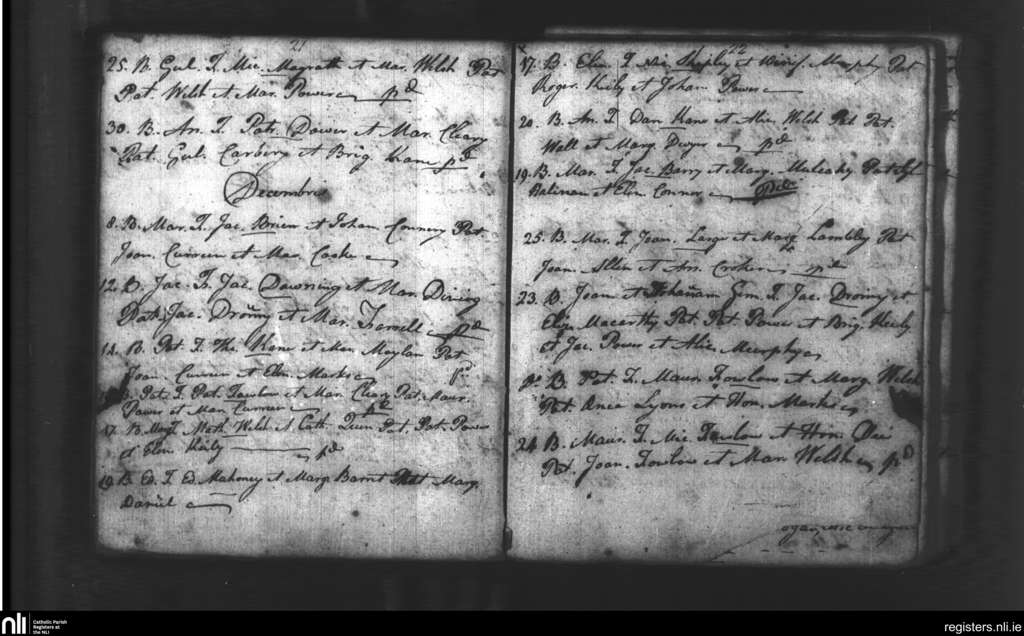 21
25. B. Gul. F. Mic. Magrath et Mar. Welsh Pat
Pat. Welsh et Mar. Power pd
30. B. An. F. Patr. Dower et Mar. Cleary
Pat. Gul. Carbery et Brig. Kane pd
Decembris
8. B. Mar. F. Jac. Brien et Johan Connery Pat
Joan. Curreen et Mar. Caske
12. B. Jac. F. Jac. Downing et Mar. Dining
Path Jac. Droiny et Mar. Farrell pd
14. B. Pat F. Ths. Kane et Mar. Moylan Pat
Joan. Curreen et Elen Marks pd
B. Pat. F. Pat. Fowlow et Mar. Cleary Pat. Maur.
Power et Mar. Curreen pd
17. B. Mary F. Math. Welsh et Cath. Quin Pat. Pat. Power
et Elen Kiely pd
19. B. Ed. F. Ed. Mahoney et Marg. Barnt Pat Marg.
Daniel
22
17. B. Elen F. Nic. Shepley et Winif. Murphy Pat
Roger. Kiely et Johan Power
20. B. An. F. Dan Kane et Alic. Welsh Pat Pat.
Wall et Marg. Dwyer pd
19. B. Mar. F. Jac. Barry et Marg. Mulcahy Pat
et Elen Connor
25. B. Mar. F. Joan. Large et Marg. Lambly Pat
Joan. Allen et An. Croker pd
23. B. Joan et Johanam Gem. F. Jac. Droiny et
Eliz. Macarthy Pat. Pat. Power et Brig. Kiely
et Jac. Power et Alic. Murphy
B. Pat. F. Maur. Fowlow et Marg. Welsh
Pat. Lyons et Hon. Marks
24. B. Maur. F. Mic. Fowlow et Hon.
Pat. Joan. Fowlow et Mar. Welsh pd
nli
Catholic Parish
Registers at
the NLI
registers.nli.ie